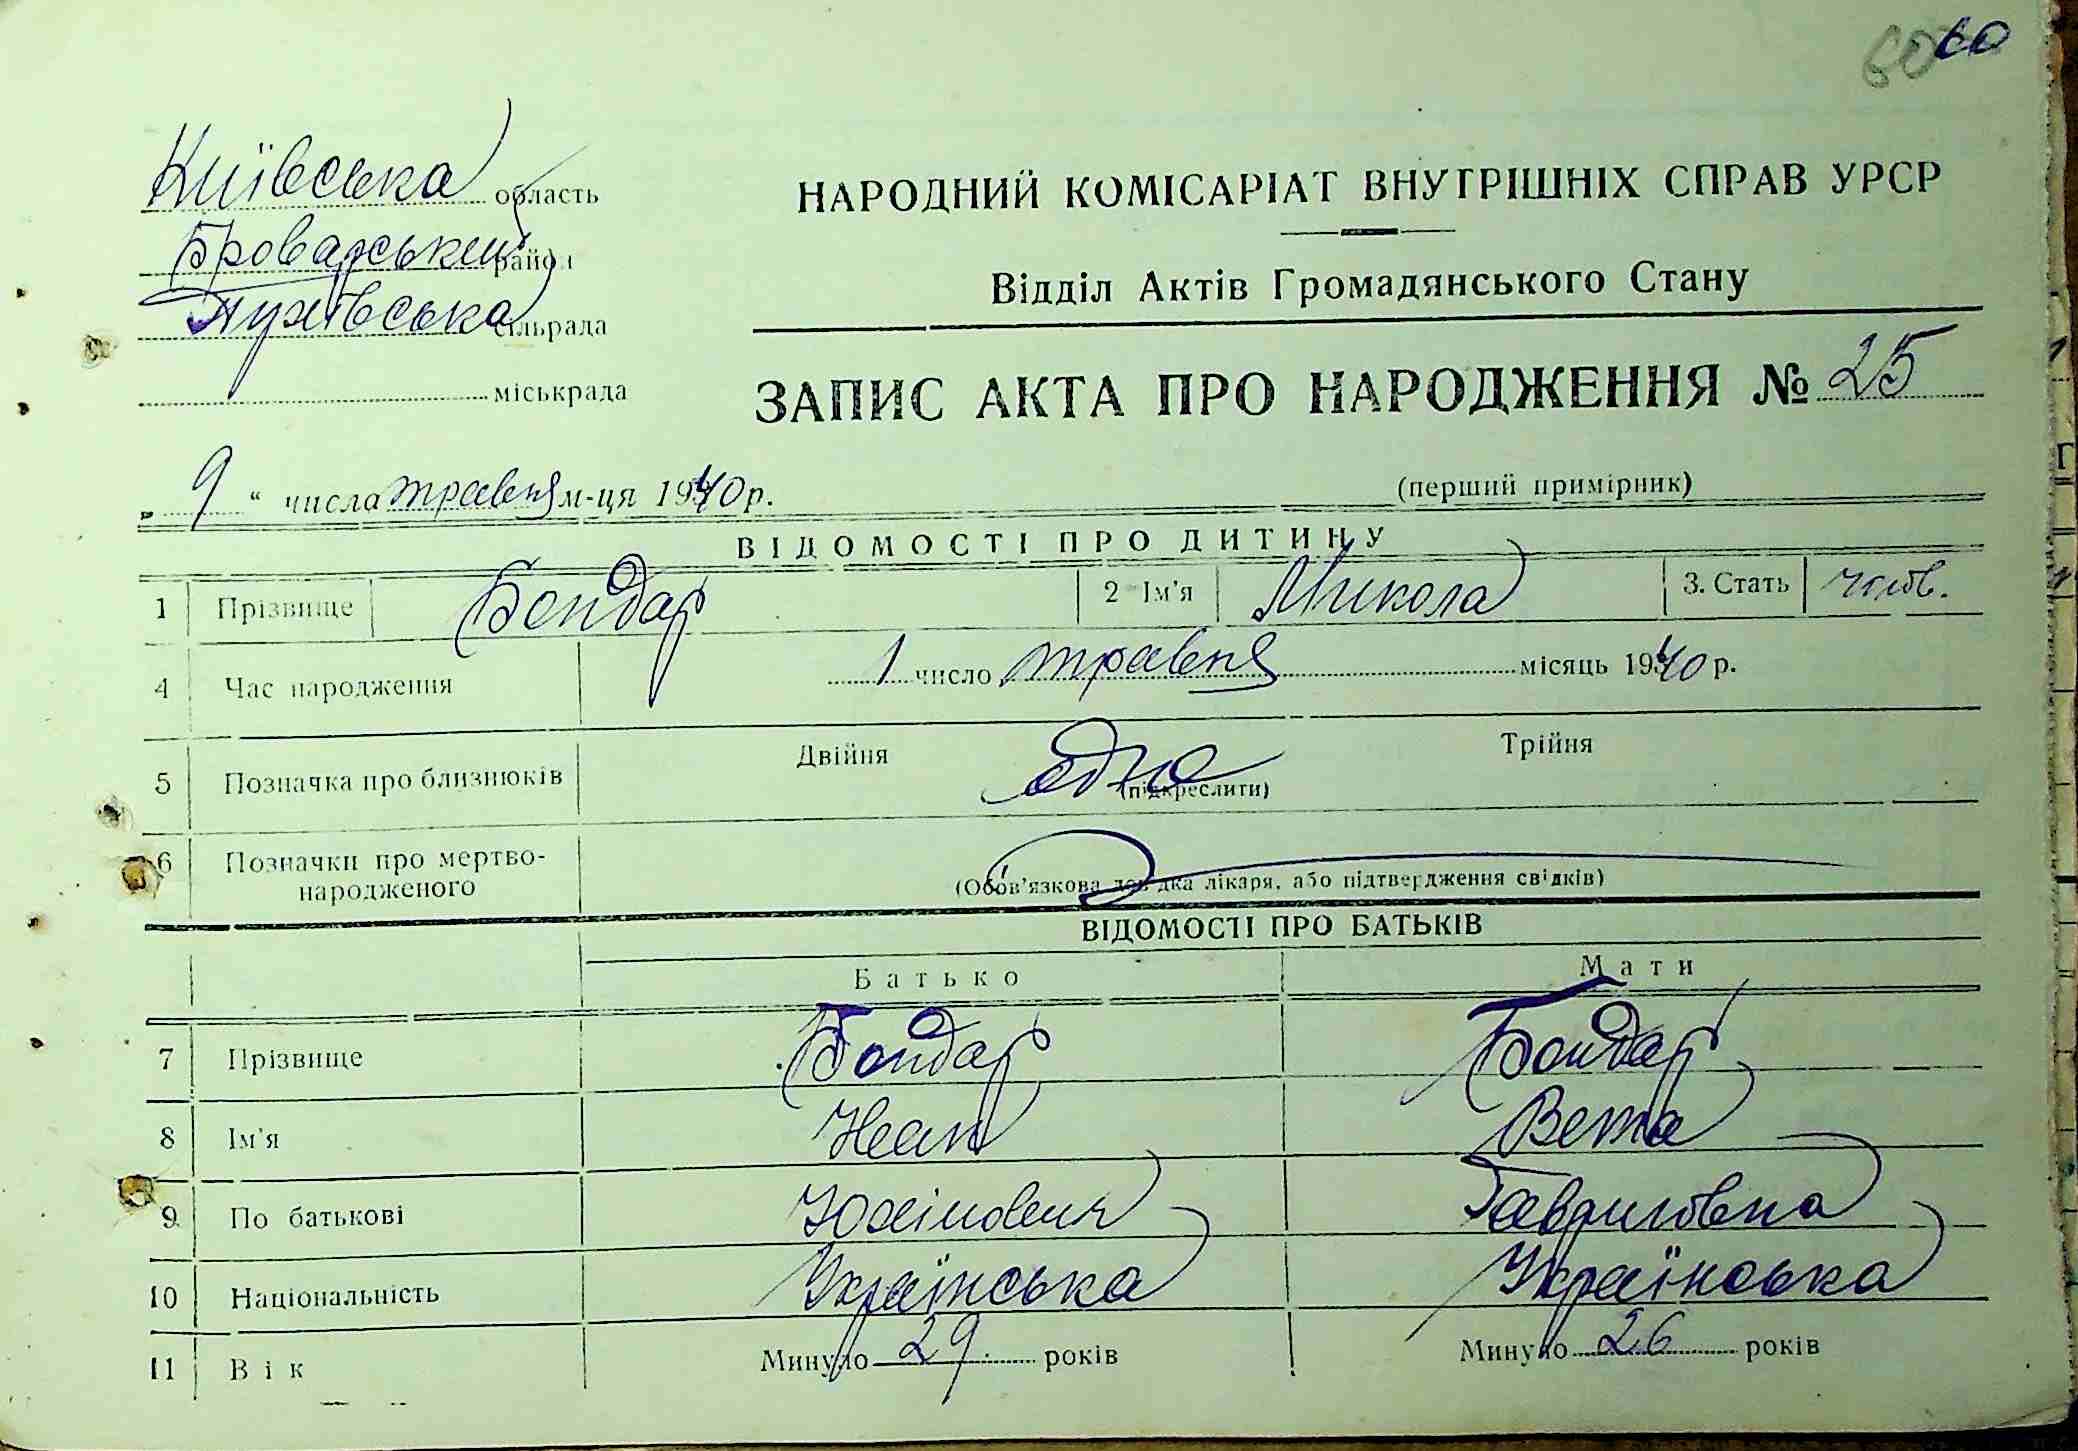 60 60
Київська область
Броварський район
Пухівська сільрада
міськрада
НАРОДНИЙ КОМІСАРІАТ ВНУТРІШНІХ СПРАВ УРСР
Відділ Актів Громадянського Стану
ЗАПИС АКТА ПРО НАРОДЖЕННЯ № 25
„ 9 “ числа травня м-ця 1940 р.
(перший примірник)
ВІДОМОСТІ ПРО ДИТИНУ
1 Прізвище Бондар 2 Ім'я Микола 3. Стать чолов.
4 Час народження 1 число травня місяць 1940 р.
5 Позначка про близнюків Двійня одно Трійня
(підкреслити)
6 Позначки про мертво-
народженого
(Обов'язкова довідка лікаря, або підтвердження свідків)
ВІДОМОСТІ ПРО БАТЬКІВ
Батько Мати
7 Прізвище Бондар Бондар
8 Ім'я Іван
9 По батькові Юхімович Гавриловна
10 Національність Українська Українська
11 Вік Минуло 29 років Минуло 26 років